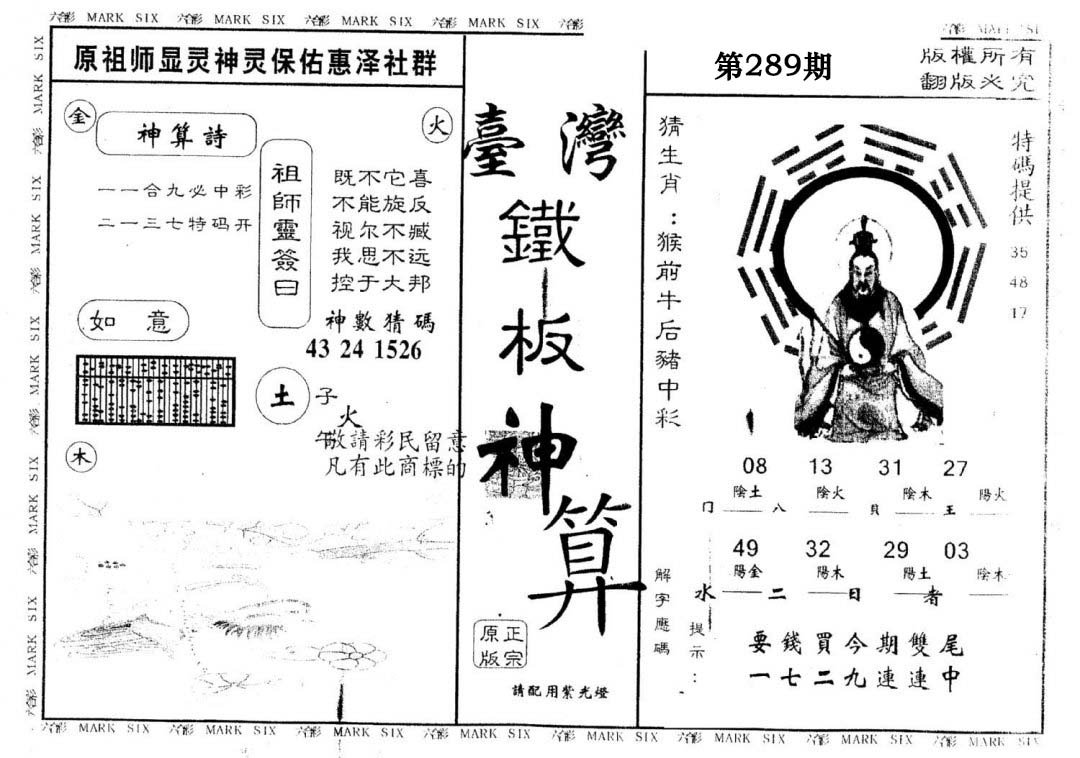 六合彩 MARK SIX 六合彩 MARK SIX 六合彩 MARK SIX 六合彩 MARK SIX 六合彩
原祖师显灵神灵保佑惠泽社群
第289期
版權所有
翻版必究
金
神算詩
火
一一合九必中彩
二一三七特码开
祖師靈簽曰
既不它喜
不能旋反
视尔不臧
我思不远
控于大邦
如意
神數猜碼
43 24 1526
土
子
火
午
敬請彩民留意
凡有此商標的
木
臺灣
鐵板神算
正宗
原版
請配用紫光燈
猜生肖：猴前牛后豬中彩
特碼提供
35
48
17
08 13 31 27
陰土 陰火 陰木 陽火
门 八 貝 王
49 32 29 03
陽金 陽木 陽土 陰木
水 二 日 者
解字應碼
提示：
要錢買今期雙尾
一七二九連連中
六合彩 MARK SIX 六合彩 MARK SIX 六合彩 MARK SIX 六合彩 MARK SIX 六合彩 MARK SIX 六合彩 MARK SIX 六合彩 MARK SIX 六合彩 MARK SIX